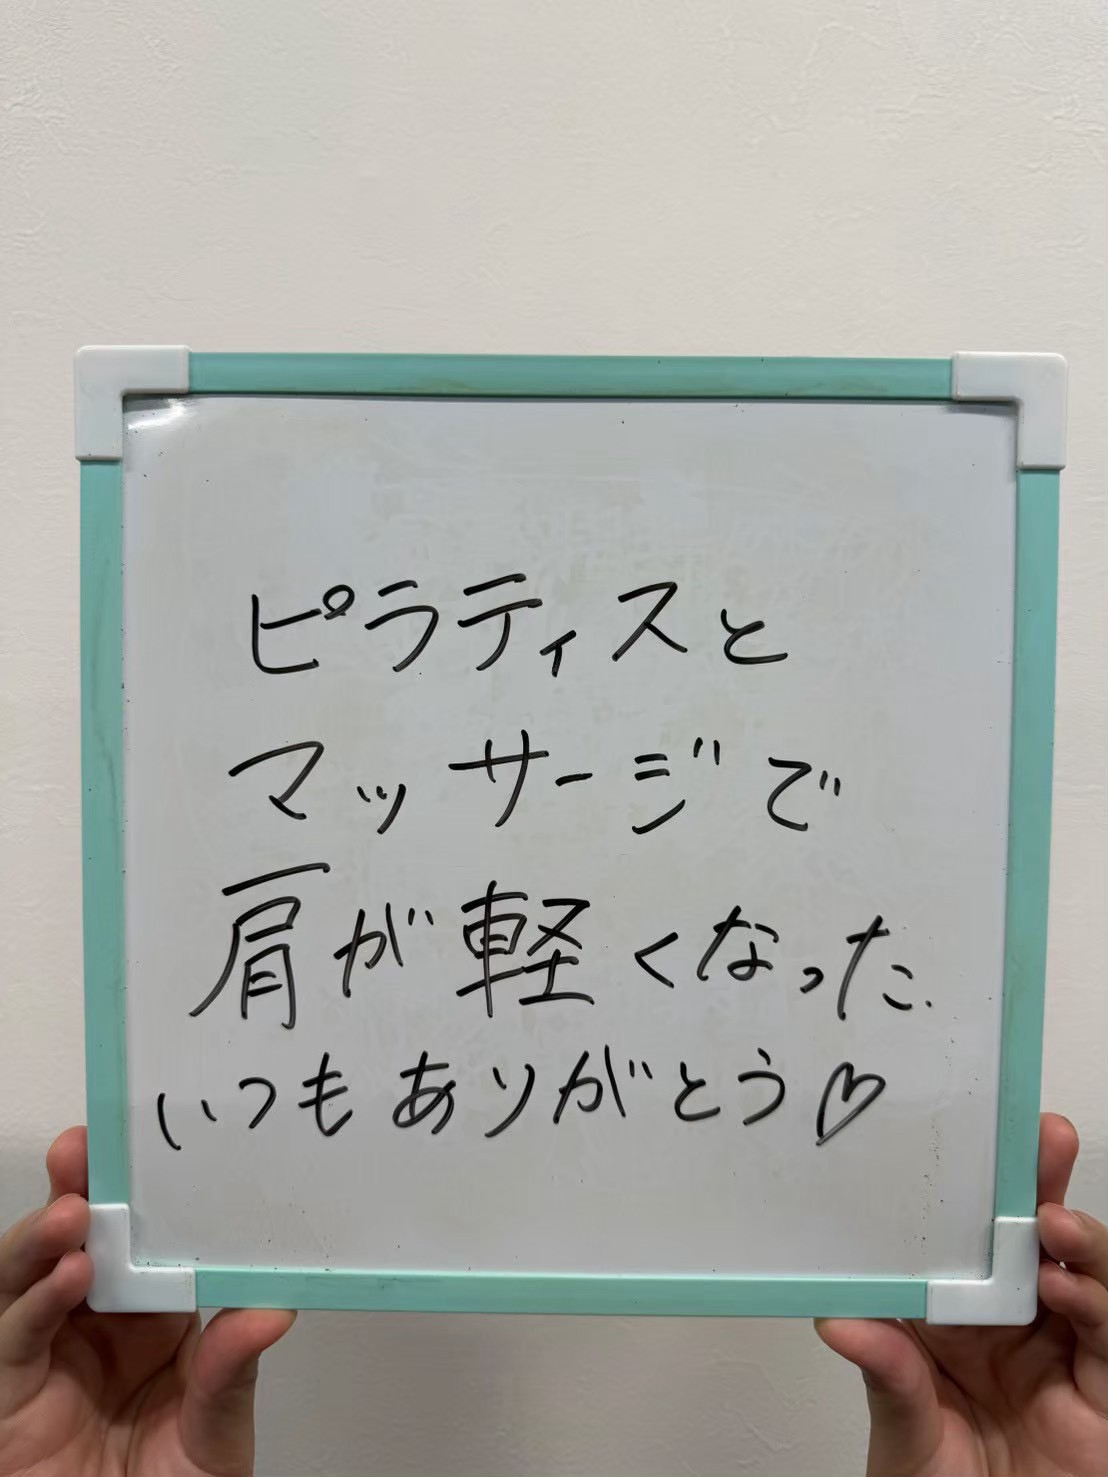 ピラティスと
マッサージで
肩が軽くなった.
いつもありがとう♡